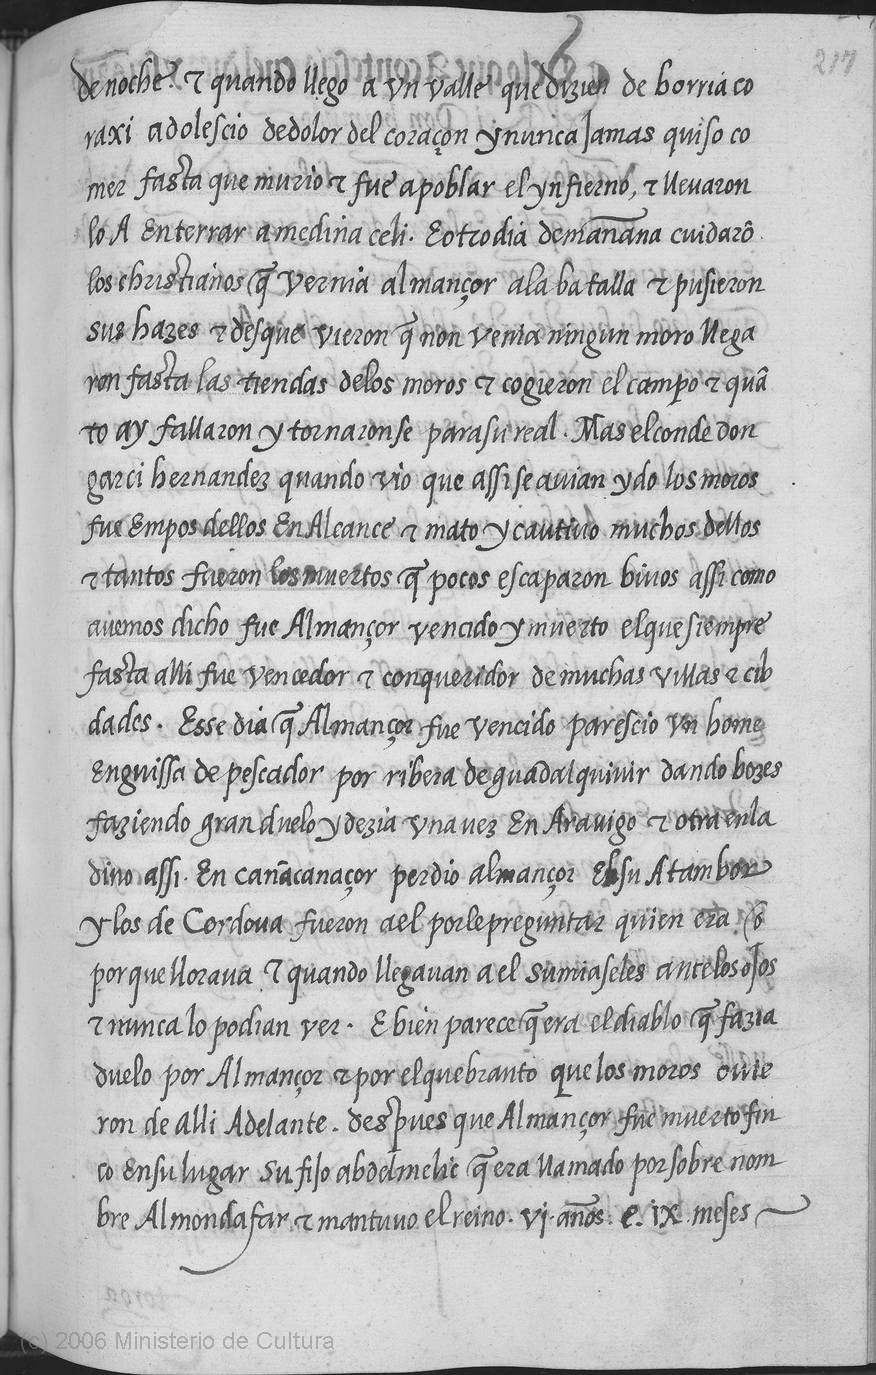 217
de noche. τ quando llego a vn valle que dizien de borria co
raxi adolescio de dolor del coraçon y nunca Jamas quiso co
mer fasta que murio τ fue a poblar el ynfierno, τ lleuaron
lo A Enterrar a medina celi. E otro dia de mañana cuidarõ
los christianos q̃ vernia almançor a la batalla τ pusieron
sus hazes τ desque vieron q̃ non venia ningun moro llega
ron fasta las tiendas de los moros τ cogieron el campo τ quã
to ay fallaron y tornaronse para su real. Mas el conde don
garci hernandez quando vio que assi se auian ydo los moros
fue Empos dellos En Alcance τ mato y cautiuo muchos dellos
τ tantos fueron los muertos q̃ pocos escaparon biuos assi como
auemos dicho fue Almançor vencido y muerto el que siempre
fasta alli fue vencedor τ conqueridor de muchas villas τ cib
dades. Esse dia q̃ Almançor fue vencido parescio vn home
En guissa de pescador por ribera de guadalquiuir dando bozes
faziendo gran duelo y dezia vna vez En Arauigo τ otra en la
dino assi. En cañacanaçor perdio almançor El su Atambor
y los de Cordoua fueron a el por le preguntar quien era. õ
por que lloraua τ quando llegauan a el sumiaseles ante los oJos
τ nunca lo podian ver. E bien parece q̃ era el diablo q̃ fazia
duelo por Almançor τ por el quebranto que los moros ouie
ron de alli Adelante. despues que Almançor fue muerto fin
co En su lugar su fijo abdelmelic q̃ era llamado por sobre nom
bre Almondafar τ mantuuo el reino. vj. años. e. ix meses
(c) 2006 Ministerio de Cultura